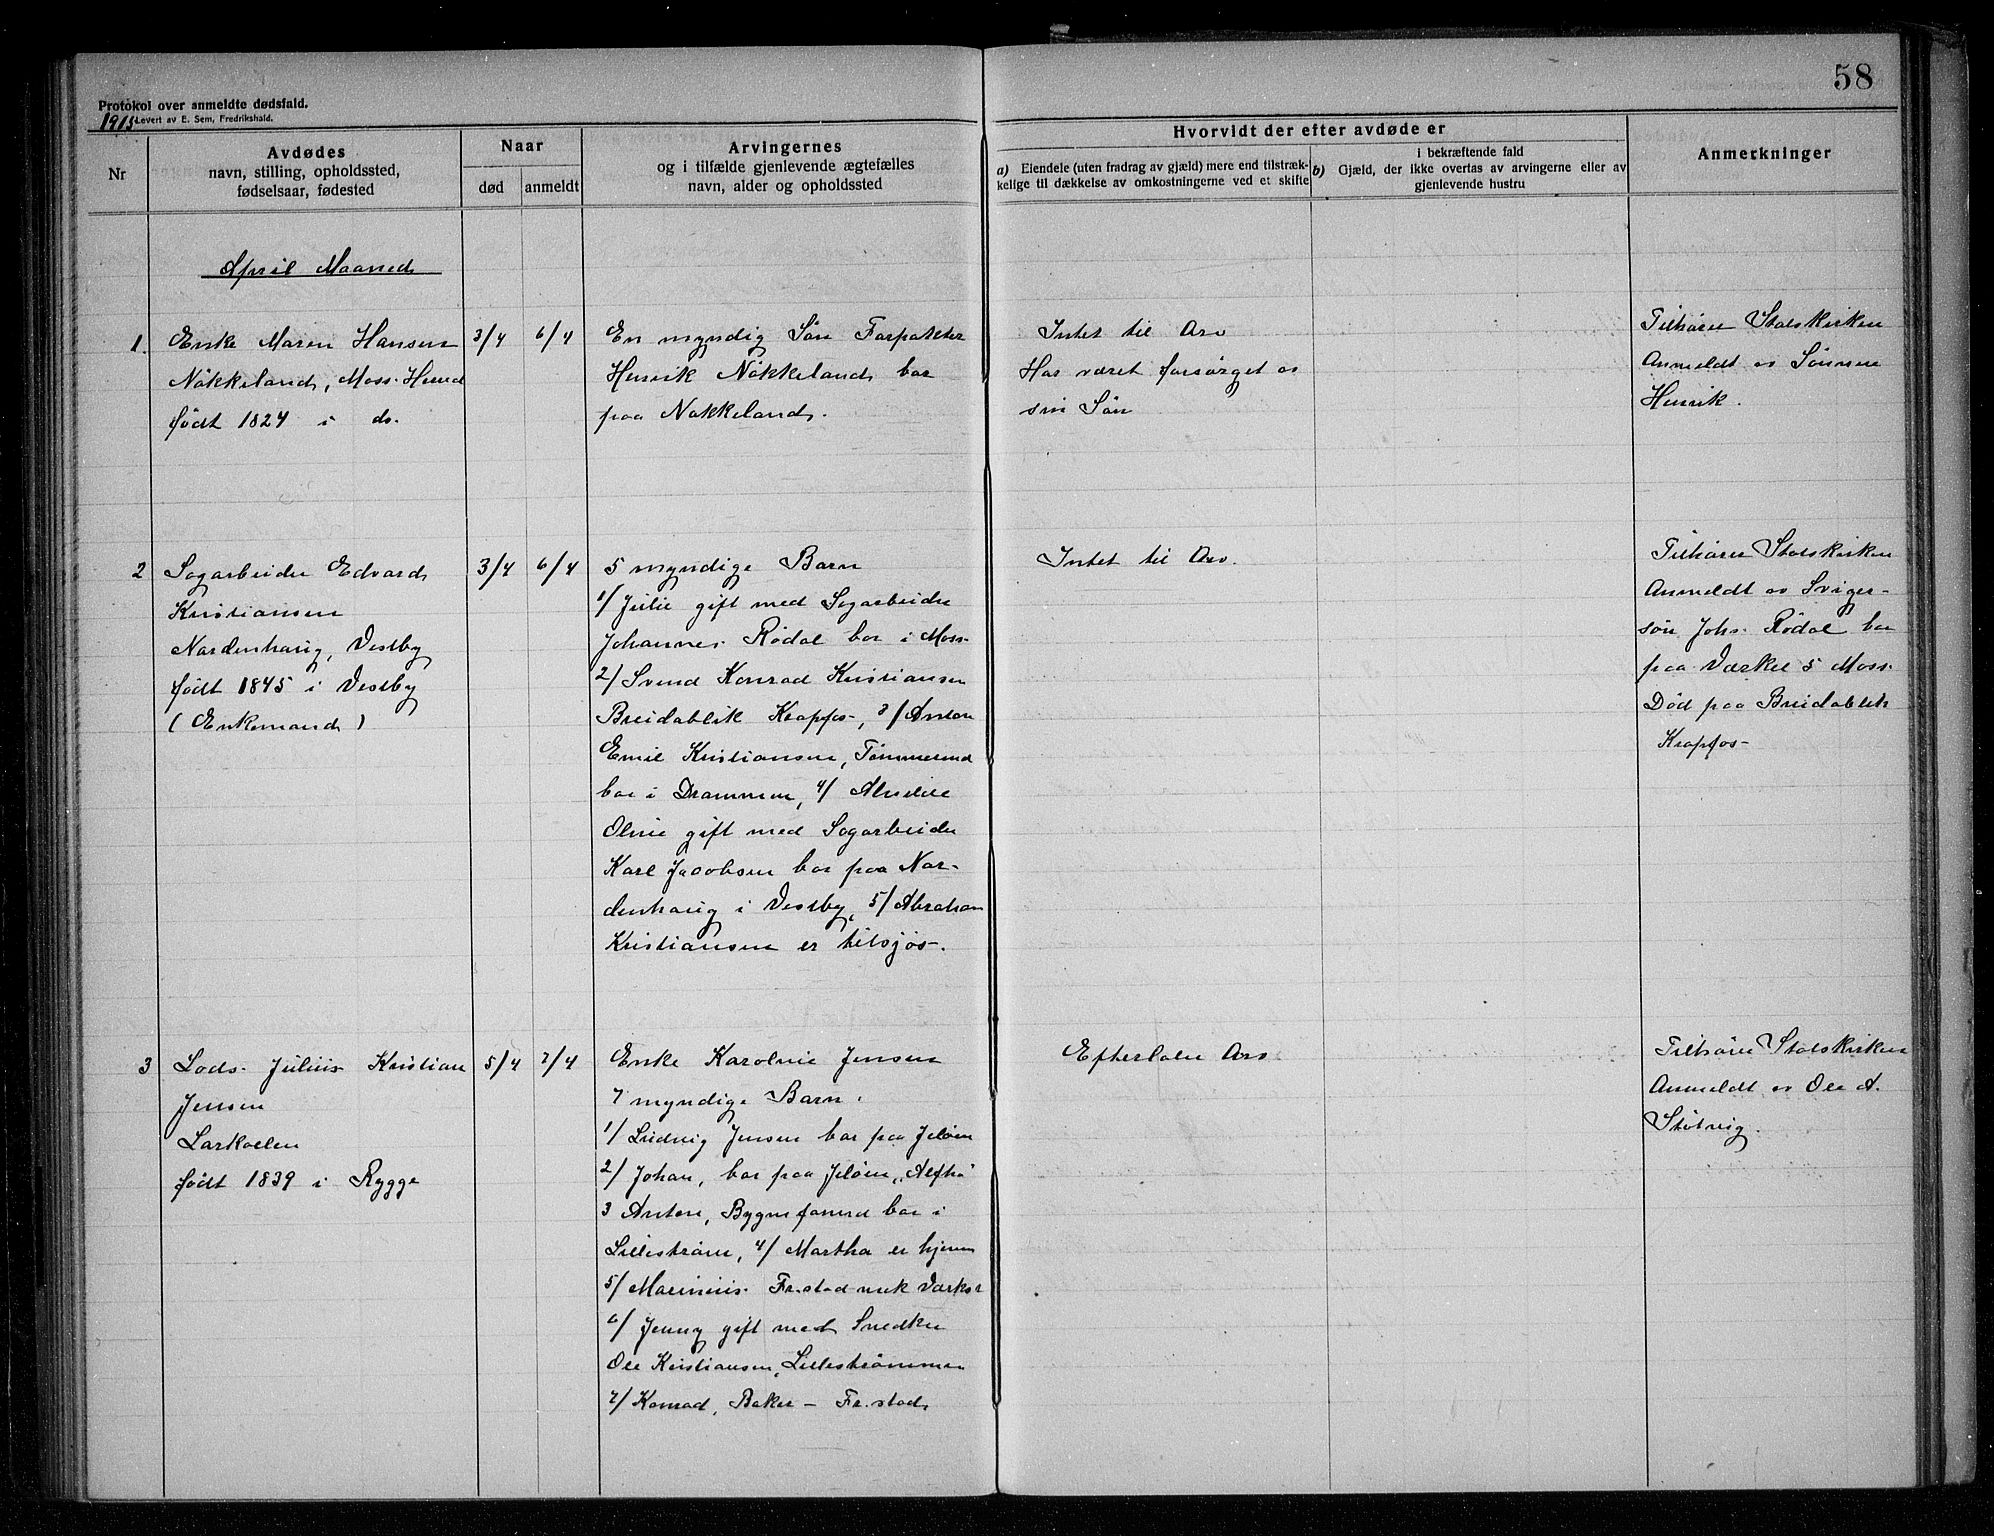 58
Protokol over anmeldte dødsfald.
1915 Levert av E. Sem, Fredrikshald.
Nr
Avdødes
navn, stilling, opholdssted,
fødselsaar, fødested
Naar
død
anmeldt
Arvingernes
og i tilfælde gjenlevende ægtefælles
navn, alder og opholdssted
Hvorvidt der efter avdøde er
a) Eiendele (uten fradrag av gjæld) mere end tilstræk-
kelige til dækkelse av omkostningerne ved et skifte
i bekræftende fald
b) Gjæld, der ikke overtas av arvingerne eller av
gjenlevende hustru
Anmerkninger
April Maaned
1.
Enke Maren Hansen
Nökkeland, Moss. Herred
født 1824 i do.
3/4
6/4
En myndig Sön Forpakter
Henrik Nökkeland bor
paa Nökkeland.
Intet til Arv
Har været forsörget av
sin Sön
Tilhörer Statskirken
Anmeldt av Sönnen
Henrik.
2
Sagarbeider Edvard
Kristiansen
Nordenhaug, Vestby
født 1845 i Vestby
(Enkemand)
3/4
6/4
5 myndige Barn
1/ Julie gift med Sagarbeider
Johannes Rödal bor i Moss
2/ Svend Konrad Kristiansen
Breidablik Krapfos, 3/ Anton
Emil Kristiansen, Tömmermd
bor i Drammen, 4/
Oline gift med Sagarbeider
Karl Jacobsen bor paa Nor-
denhaug i Vestby, 5/ Abraham
Kristiansen er tilsjös.
Intet til Arv.
Tilhörer Statskirken
Anmeldt av Sviger-
sön Johs. Rödal bor
paa Værket 5 Moss.
Död paa Breidablik
Krapfos
3
Lods. Julius Kristian
Jensen
Larkollen
født 1839 i Rygge
5/4
7/4
Enke Karoline Jensen
7 myndige Barn.
1/ Ludvig Jensen bor paa Jelöen
2/ Johan, bor paa Jelöen, „Alfhö"
3 Anton, Bygn. formd bor i
Lilleström, 4/ Martha er hjem
5/ Marinius. Fr.stad mek Værkst
6/ Jenny gift med Snedker
Ole Kristiansen, Lilleströmmen
7/ Konrad, Baker – Fr.stad
Efterlater Arv
Tilhörer Statskirken
Anmeldt av Ole A.
Støtvig.